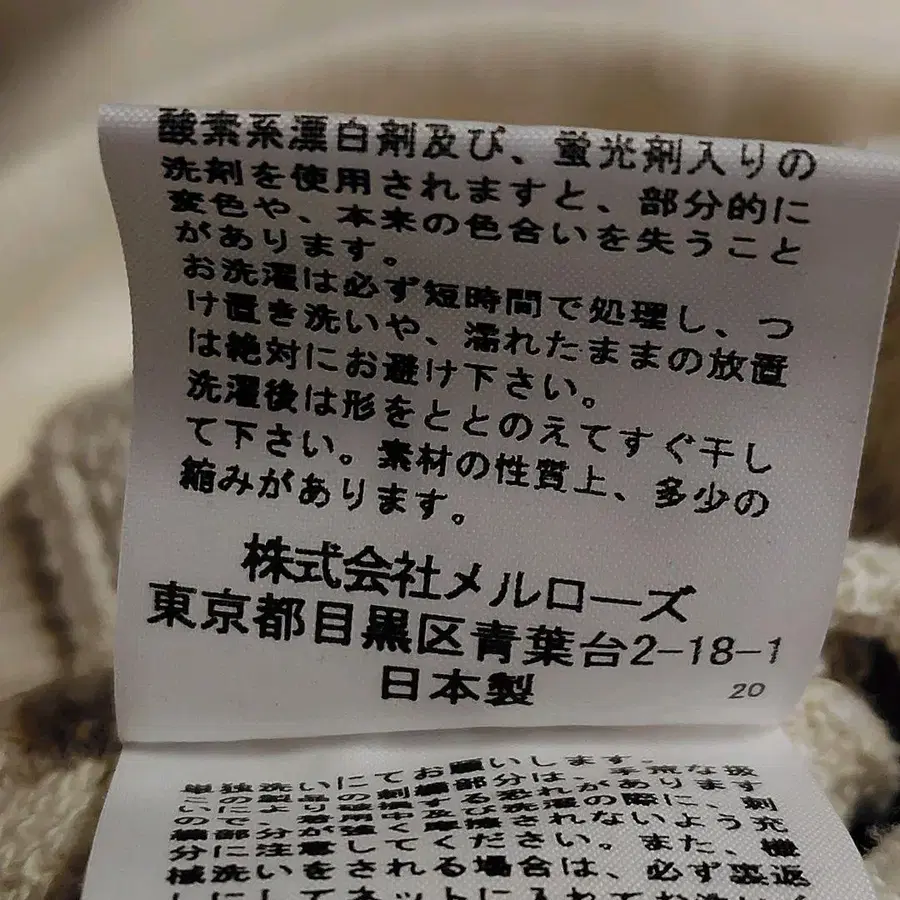 酸素系漂白剤及び、蛍光剤入りの
洗剤を使用されますと、部分的に
変色や、本来の色合いを失うこと
があります。
お洗濯は必ず短時間で処理し、つ
け置き洗いや、濡れたままの放置
は絶対にお避け下さい。
洗濯後は形をととのえてすぐ干し
て下さい。素材の性質上、多少の
縮みがあります。
株式会社メルローズ
東京都目黒区青葉台2-18-1
日本製
20
単独洗いにてお願いします。
この製品の刺繍部分は、手荒な扱
いにより破損する恐れがあります
ので、着用中及び洗濯の際に、刺
繍部分が強く摩擦されないよう充
分に注意してください。また、機
械洗いをされる場合は、必ず裏返
しにしてネットに入れてお洗い